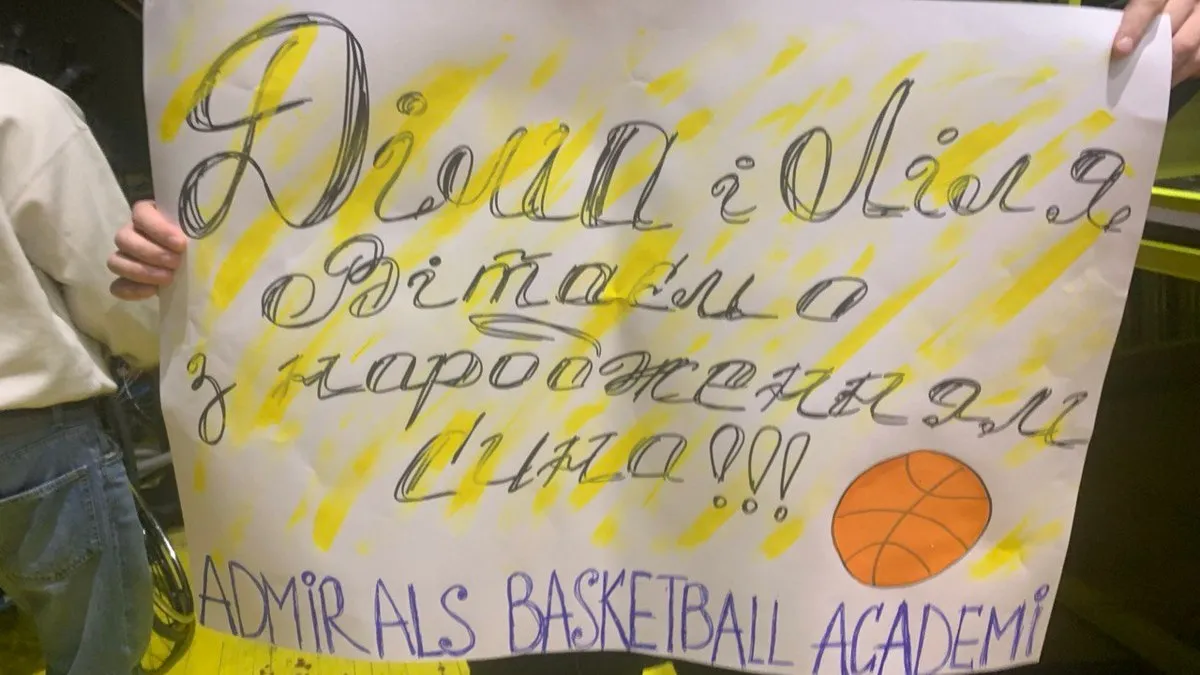 Діма і Ліля
Вітаємо
з народженням
сина!!!
ADMIRALS BASKETBALL ACADEMI